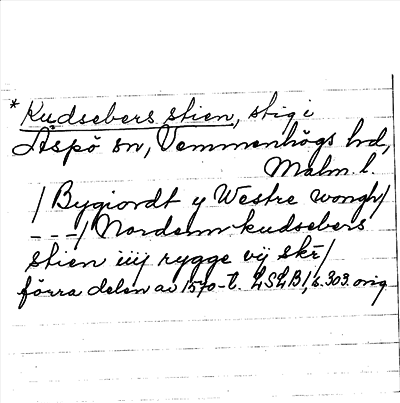 * Kudsebers stien, stig i
Äspö sn, Vemmenhögs hd,
Malm. l.
/ Bygiordt y Westre wongh/
---/ Nordenn kudsebers
stien iiij rygge vij skr̄/
förra delen av 1570-t. LSLB 1, s. 303. orig